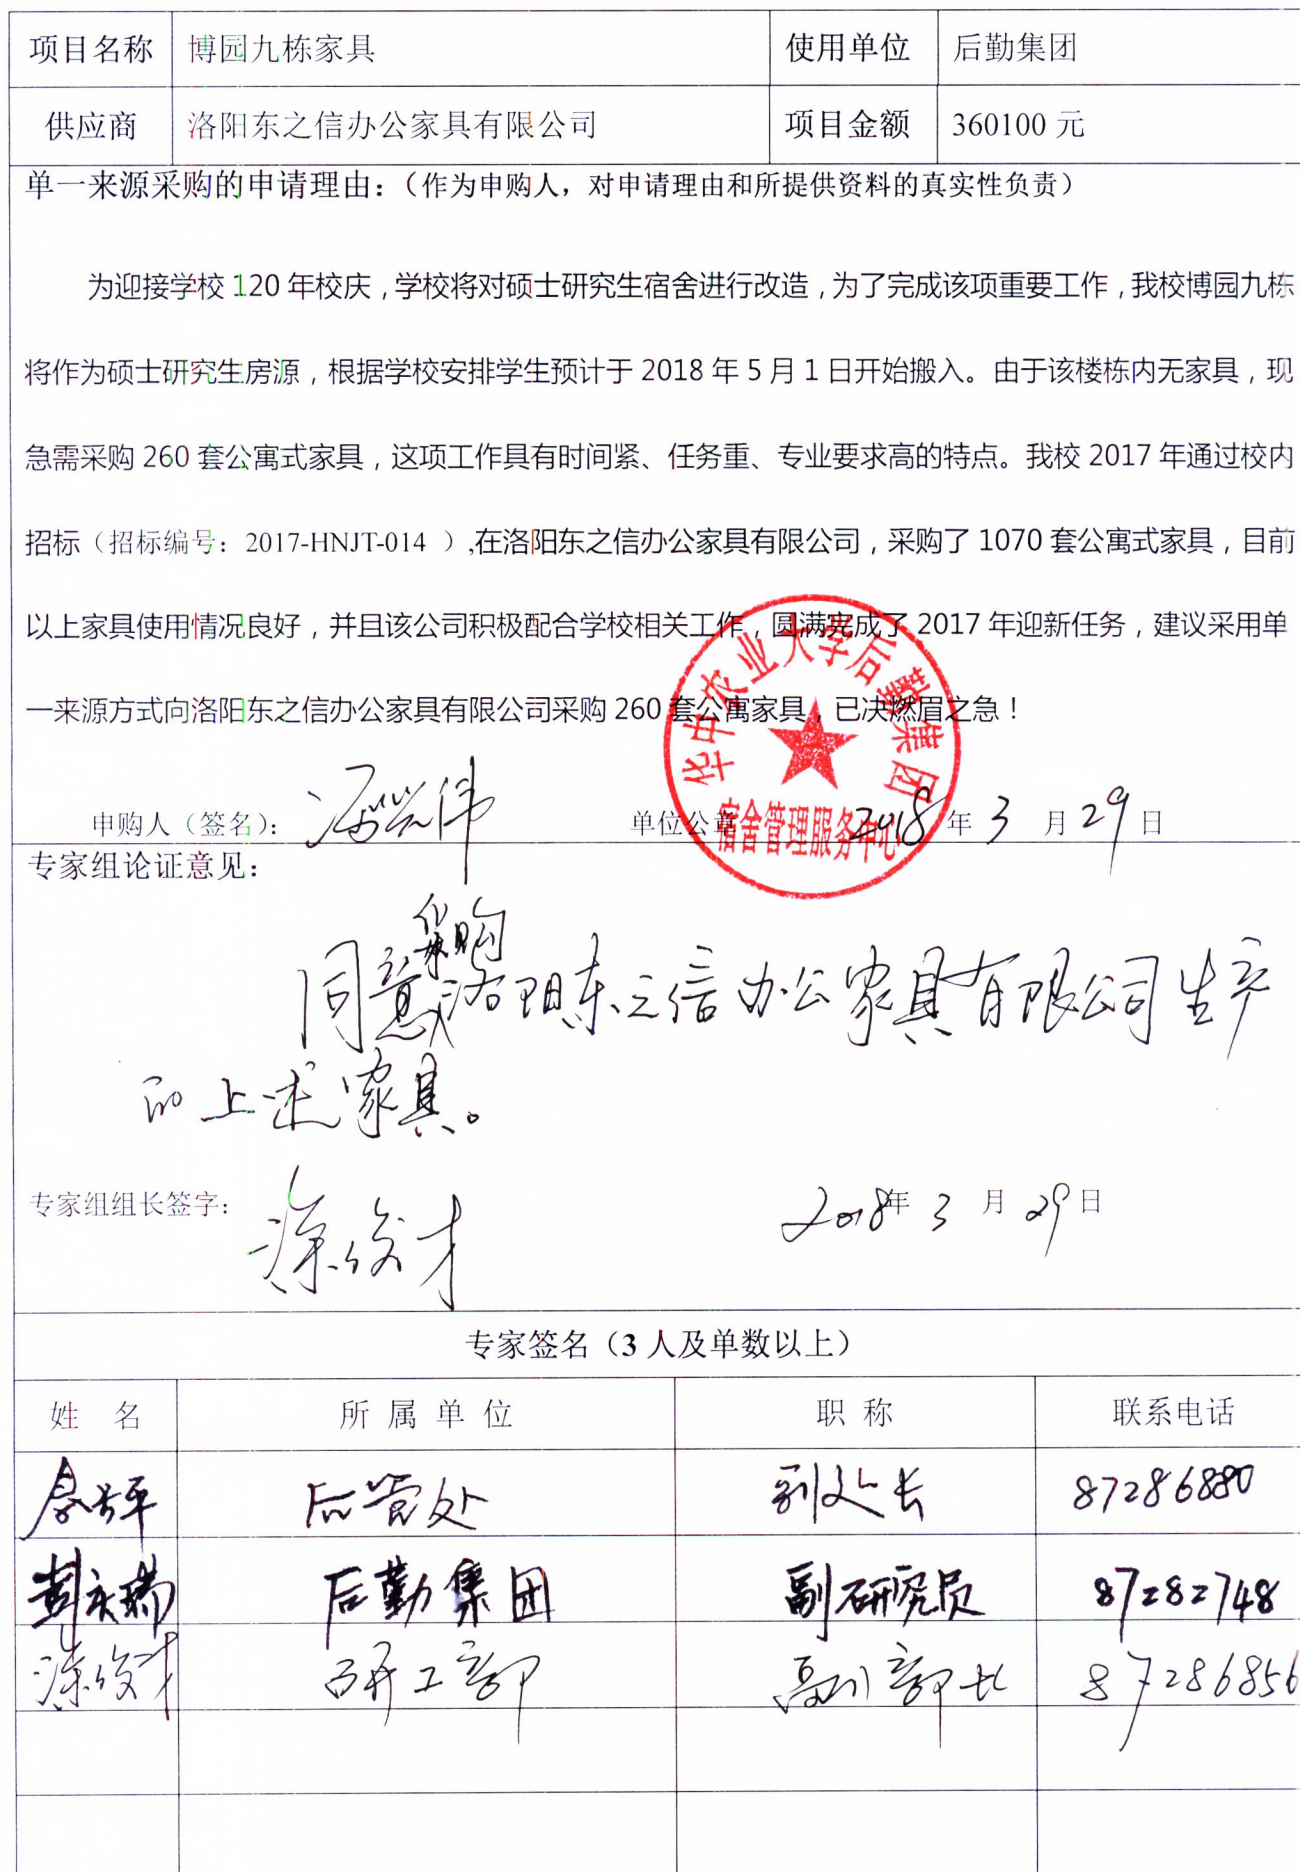 项目名称 博园九栋家具 使用单位 后勤集团
供应商 洛阳东之信办公家具有限公司 项目金额 360100 元
单一来源采购的申请理由：（作为申购人，对申请理由和所提供资料的真实性负责）
为迎接学校 120 年校庆，学校将对硕士研究生宿舍进行改造，为了完成该项重要工作，我校博园九栋
将作为硕士研究生房源，根据学校安排学生预计于 2018 年 5 月 1 日开始搬入。由于该楼栋内无家具，现
急需采购 260 套公寓式家具，这项工作具有时间紧、任务重、专业要求高的特点。我校 2017 年通过校内
招标（招标编号：2017-HNJT-014 ）,在洛阳东之信办公家具有限公司，采购了 1070 套公寓式家具，目前
以上家具使用情况良好，并且该公司积极配合学校相关工作，圆满完成了 2017 年迎新任务，建议采用单
一来源方式向洛阳东之信办公家具有限公司采购 260 套公寓家具，已决燃眉之急！
华中农业大学后勤集团
宿舍管理服务中心
申购人（签名）： 单位公章 2018 年 3 月 29 日
专家组论证意见：
同意采购洛阳东之信办公家具有限公司生产
的上述家具。
专家组组长签字： 涂俊才 2018年 3 月 29 日
专家签名（3 人及单数以上）
姓 名 所 属 单 位 职 称 联系电话
后管处 副处长 87286880
彭庆瑞 后勤集团 副研究员 87282748
涂俊才 研工部 副部长 87286856